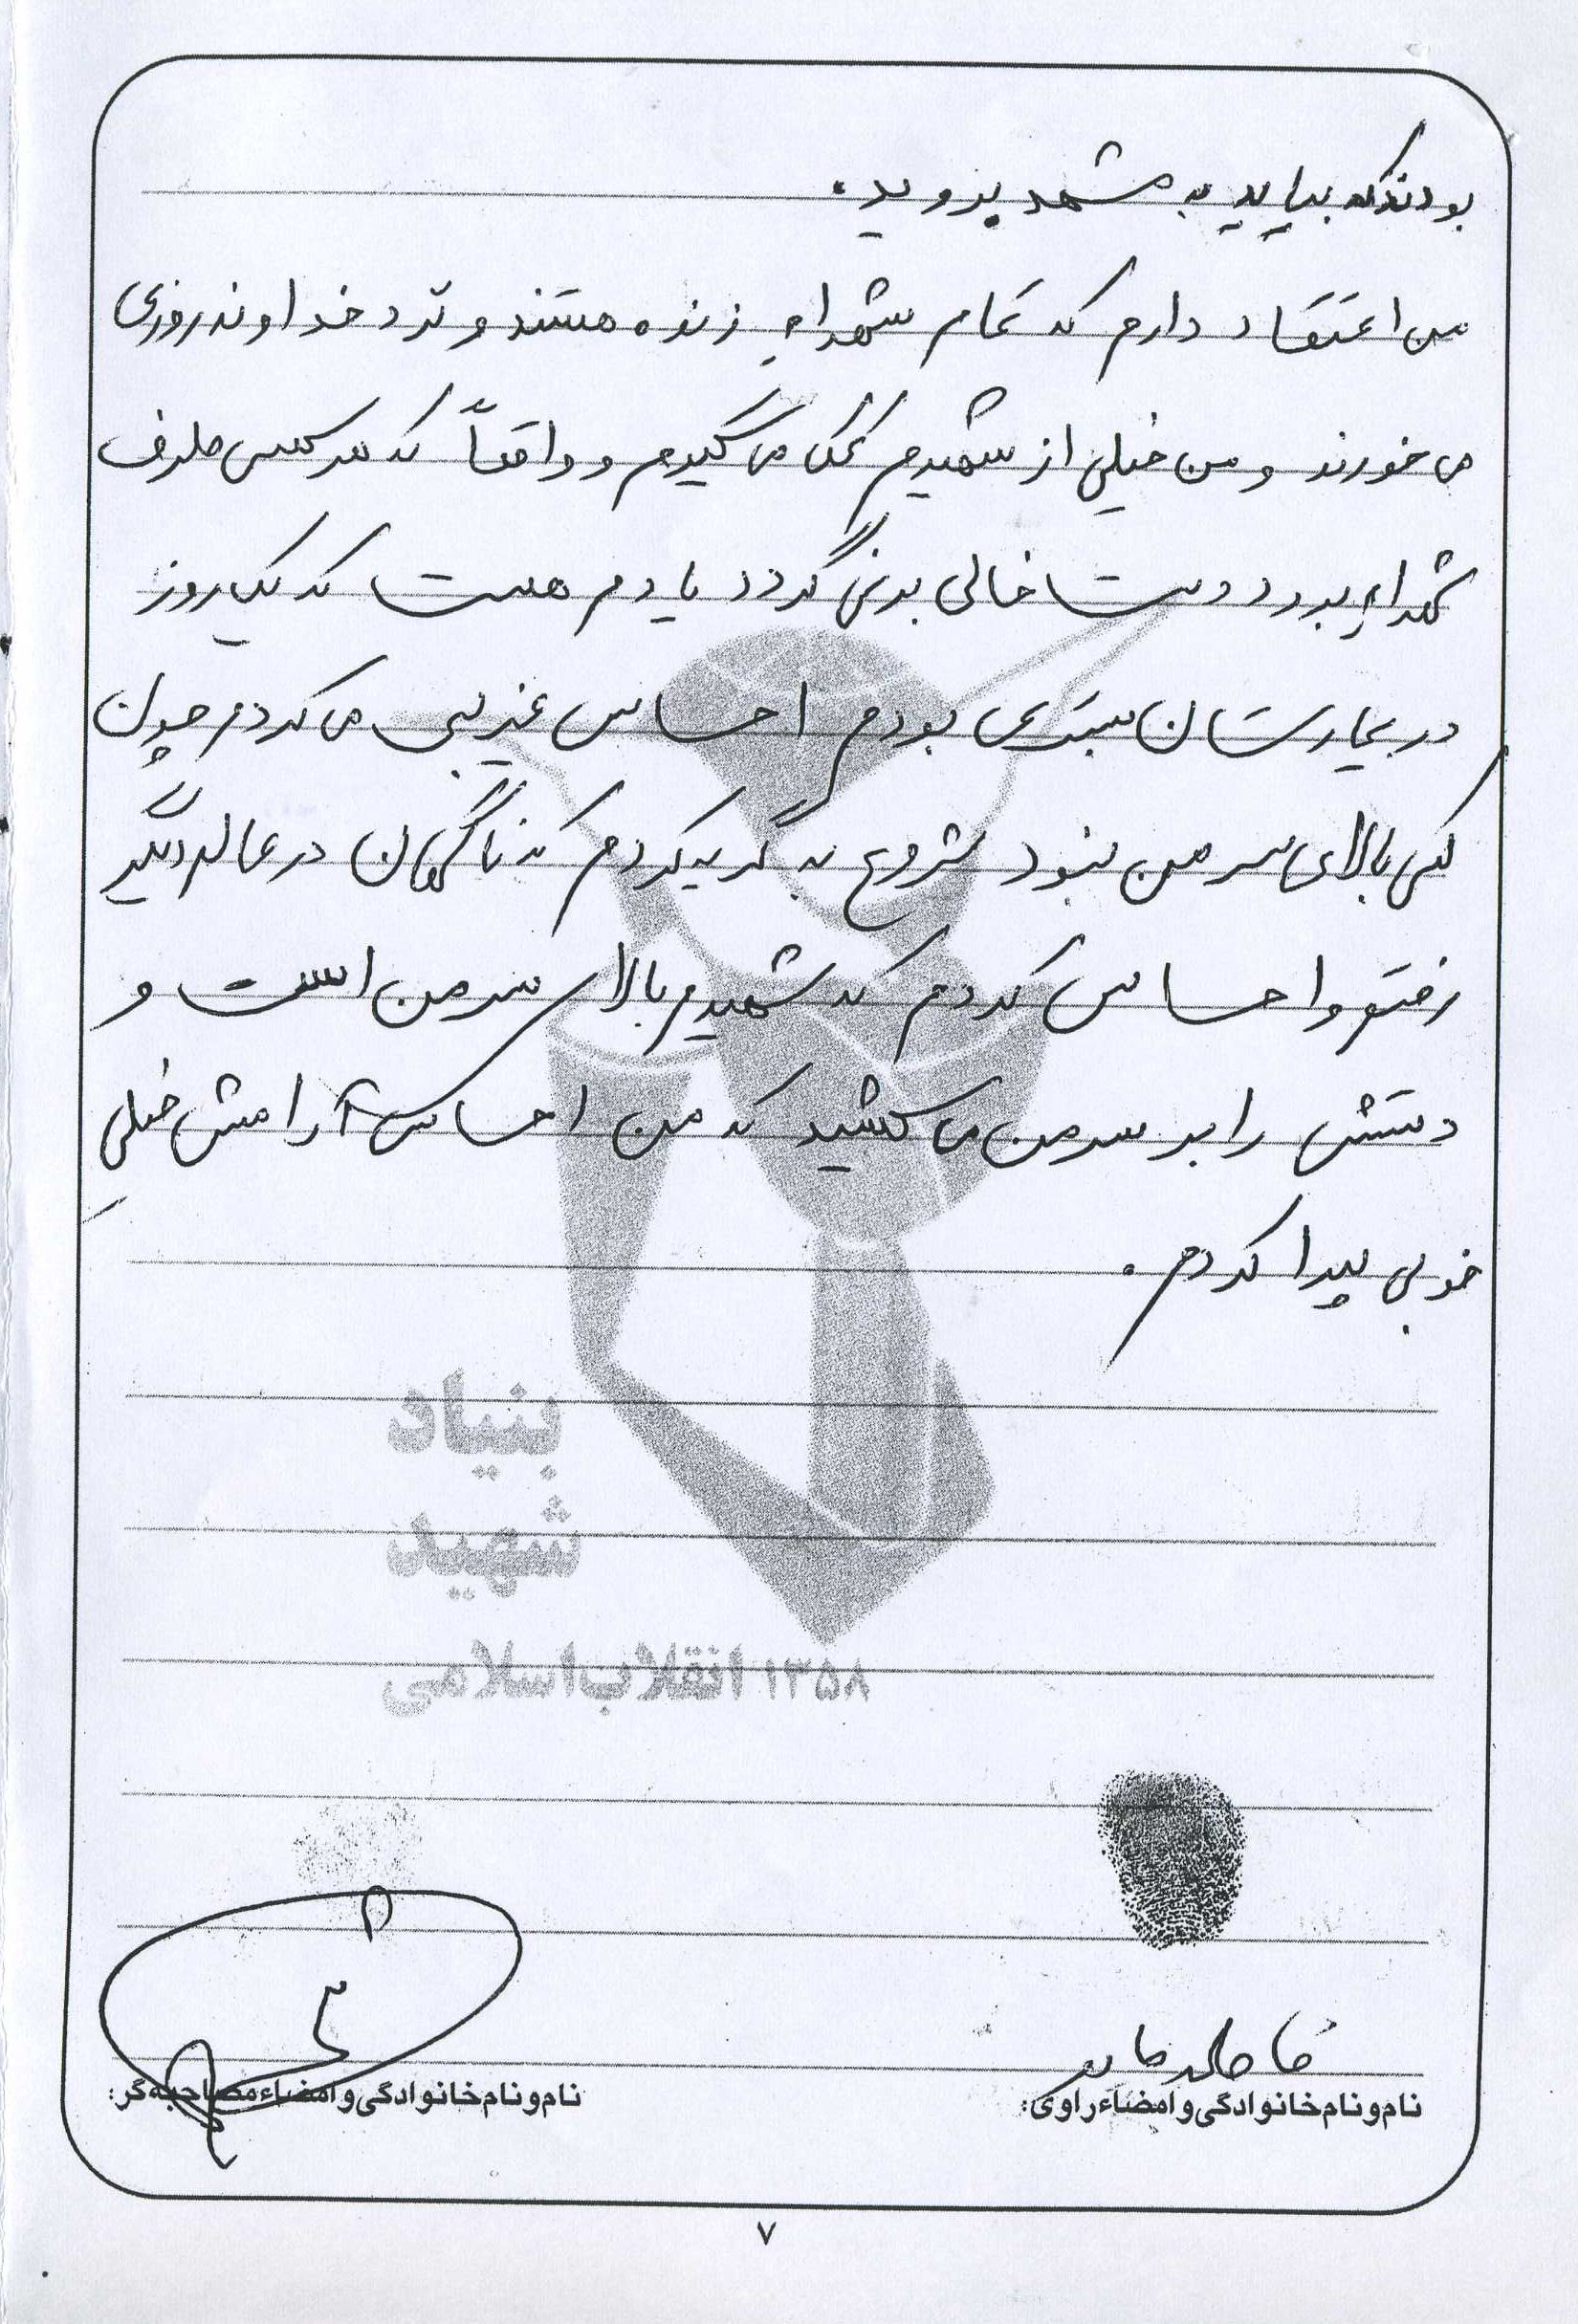 بودندکه بیایید به مشهد بروید.
من اعتقاد دارم که تمام شهداء زنده هستند و نزد خداوند روزی
می خورند و من خیلی از شهیدم کمک می گیرم و واقعاً که هر کس طرف
شهداء برود دست خالی بر نمی گردد یادم هست که یک روز
در بیمارستان بستری بودم احساس غریبی می کردم چون
کسی بالای سر من نبود شروع به گریه کردم که ناگهان در عالم دیگر
رفتم و احساس کردم که شهیدم بالای سر من است و
دستش را بر سر من می کشید که من احساس آرامش خیلی
خوبی پیدا کردم.
بنیاد
شهید
۱۳۵۸ انقلاب اسلامی
نام و نام خانوادگی و امضاء راوی:
نام و نام خانوادگی و امضاء مصاحبه گر:
۷